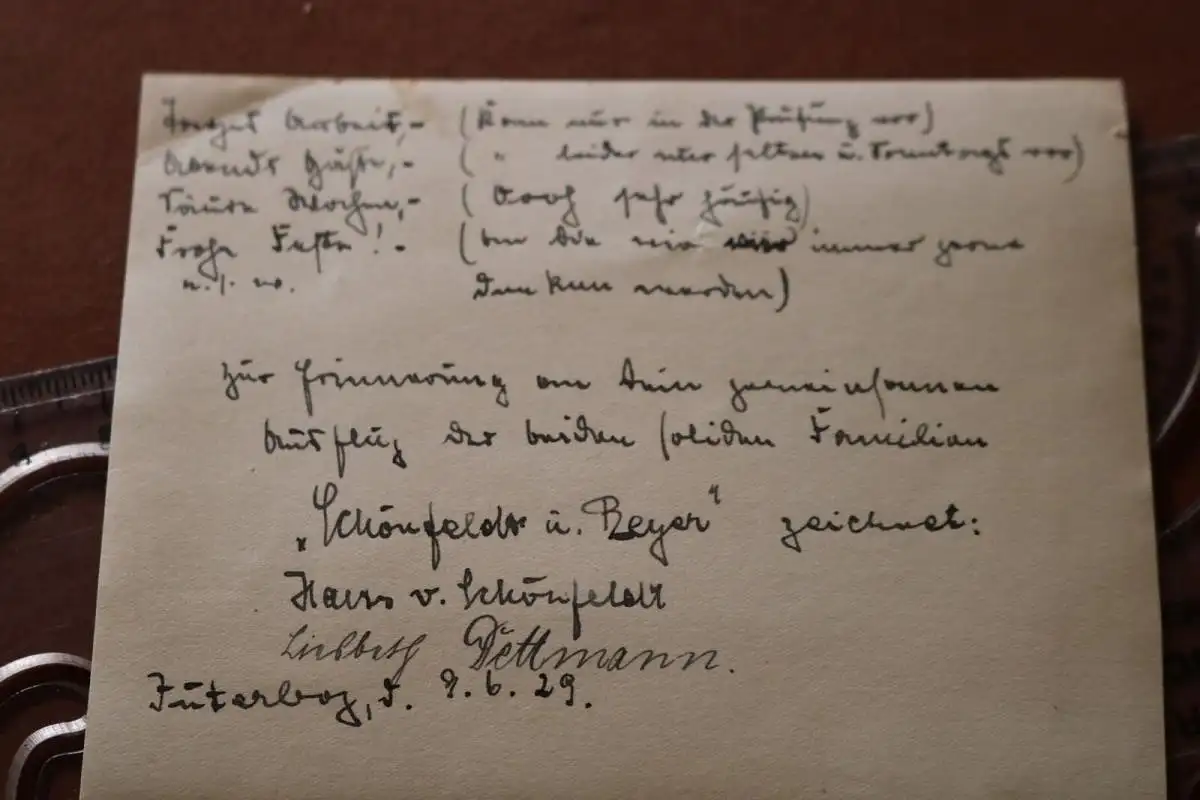 Tages Arbeit,- (Kann nur in der Prüfung vor)
Abends Gäste,- ( " leider nur selten u. Sonntags vor)
Saure Wochen,- (Doch sehr häufig)
Frohe Feste!- (an die wir immer gerne
u.s.w. denken werden)
Zur Erinnerung an den gemeinsamen
Ausflug der beiden soliden Familien
„Schönfeldt u. Beyer“ zeichnet:
Hans v. Schönfeldt
Liesbeth Dettmann.
Jüterbog, d. 9.6.29.